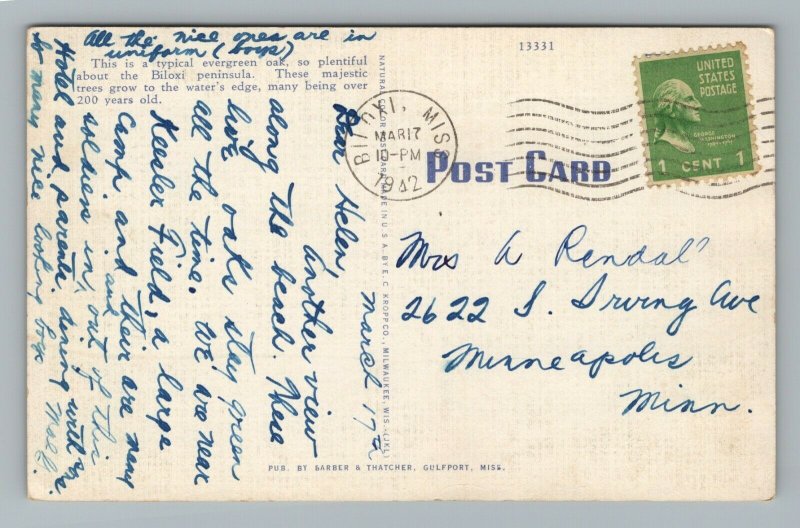 All the nice ones are in
uniform (boys)
This is a typical evergreen oak, so plentiful
about the Biloxi peninsula. These majestic
trees grow to the water's edge, many being over
200 years old.
13331
UNITED
STATES
POSTAGE
GEORGE
WASHINGTON
1 CENT 1
BILOXI, MISS.
MAR 17
10-PM
1942
POST CARD
NATURAL COLOR POST CARD MADE IN U.S.A. BY E. C. KROPP CO., MILWAUKEE, WIS.-(JKL)
March 17th
Dear Helen,
Another view
along the beach. These
live oaks stay green
all the time. We are near
Keesler Field, a large
Camp and their are many
soldiers in and out of this
Hotel and parents dining with
So many nice looking boys
Mrs A Rendal
2622 S. Irving Ave
Minneapolis
Minn.
PUB. BY BARBER & THATCHER, GULFPORT, MISS.